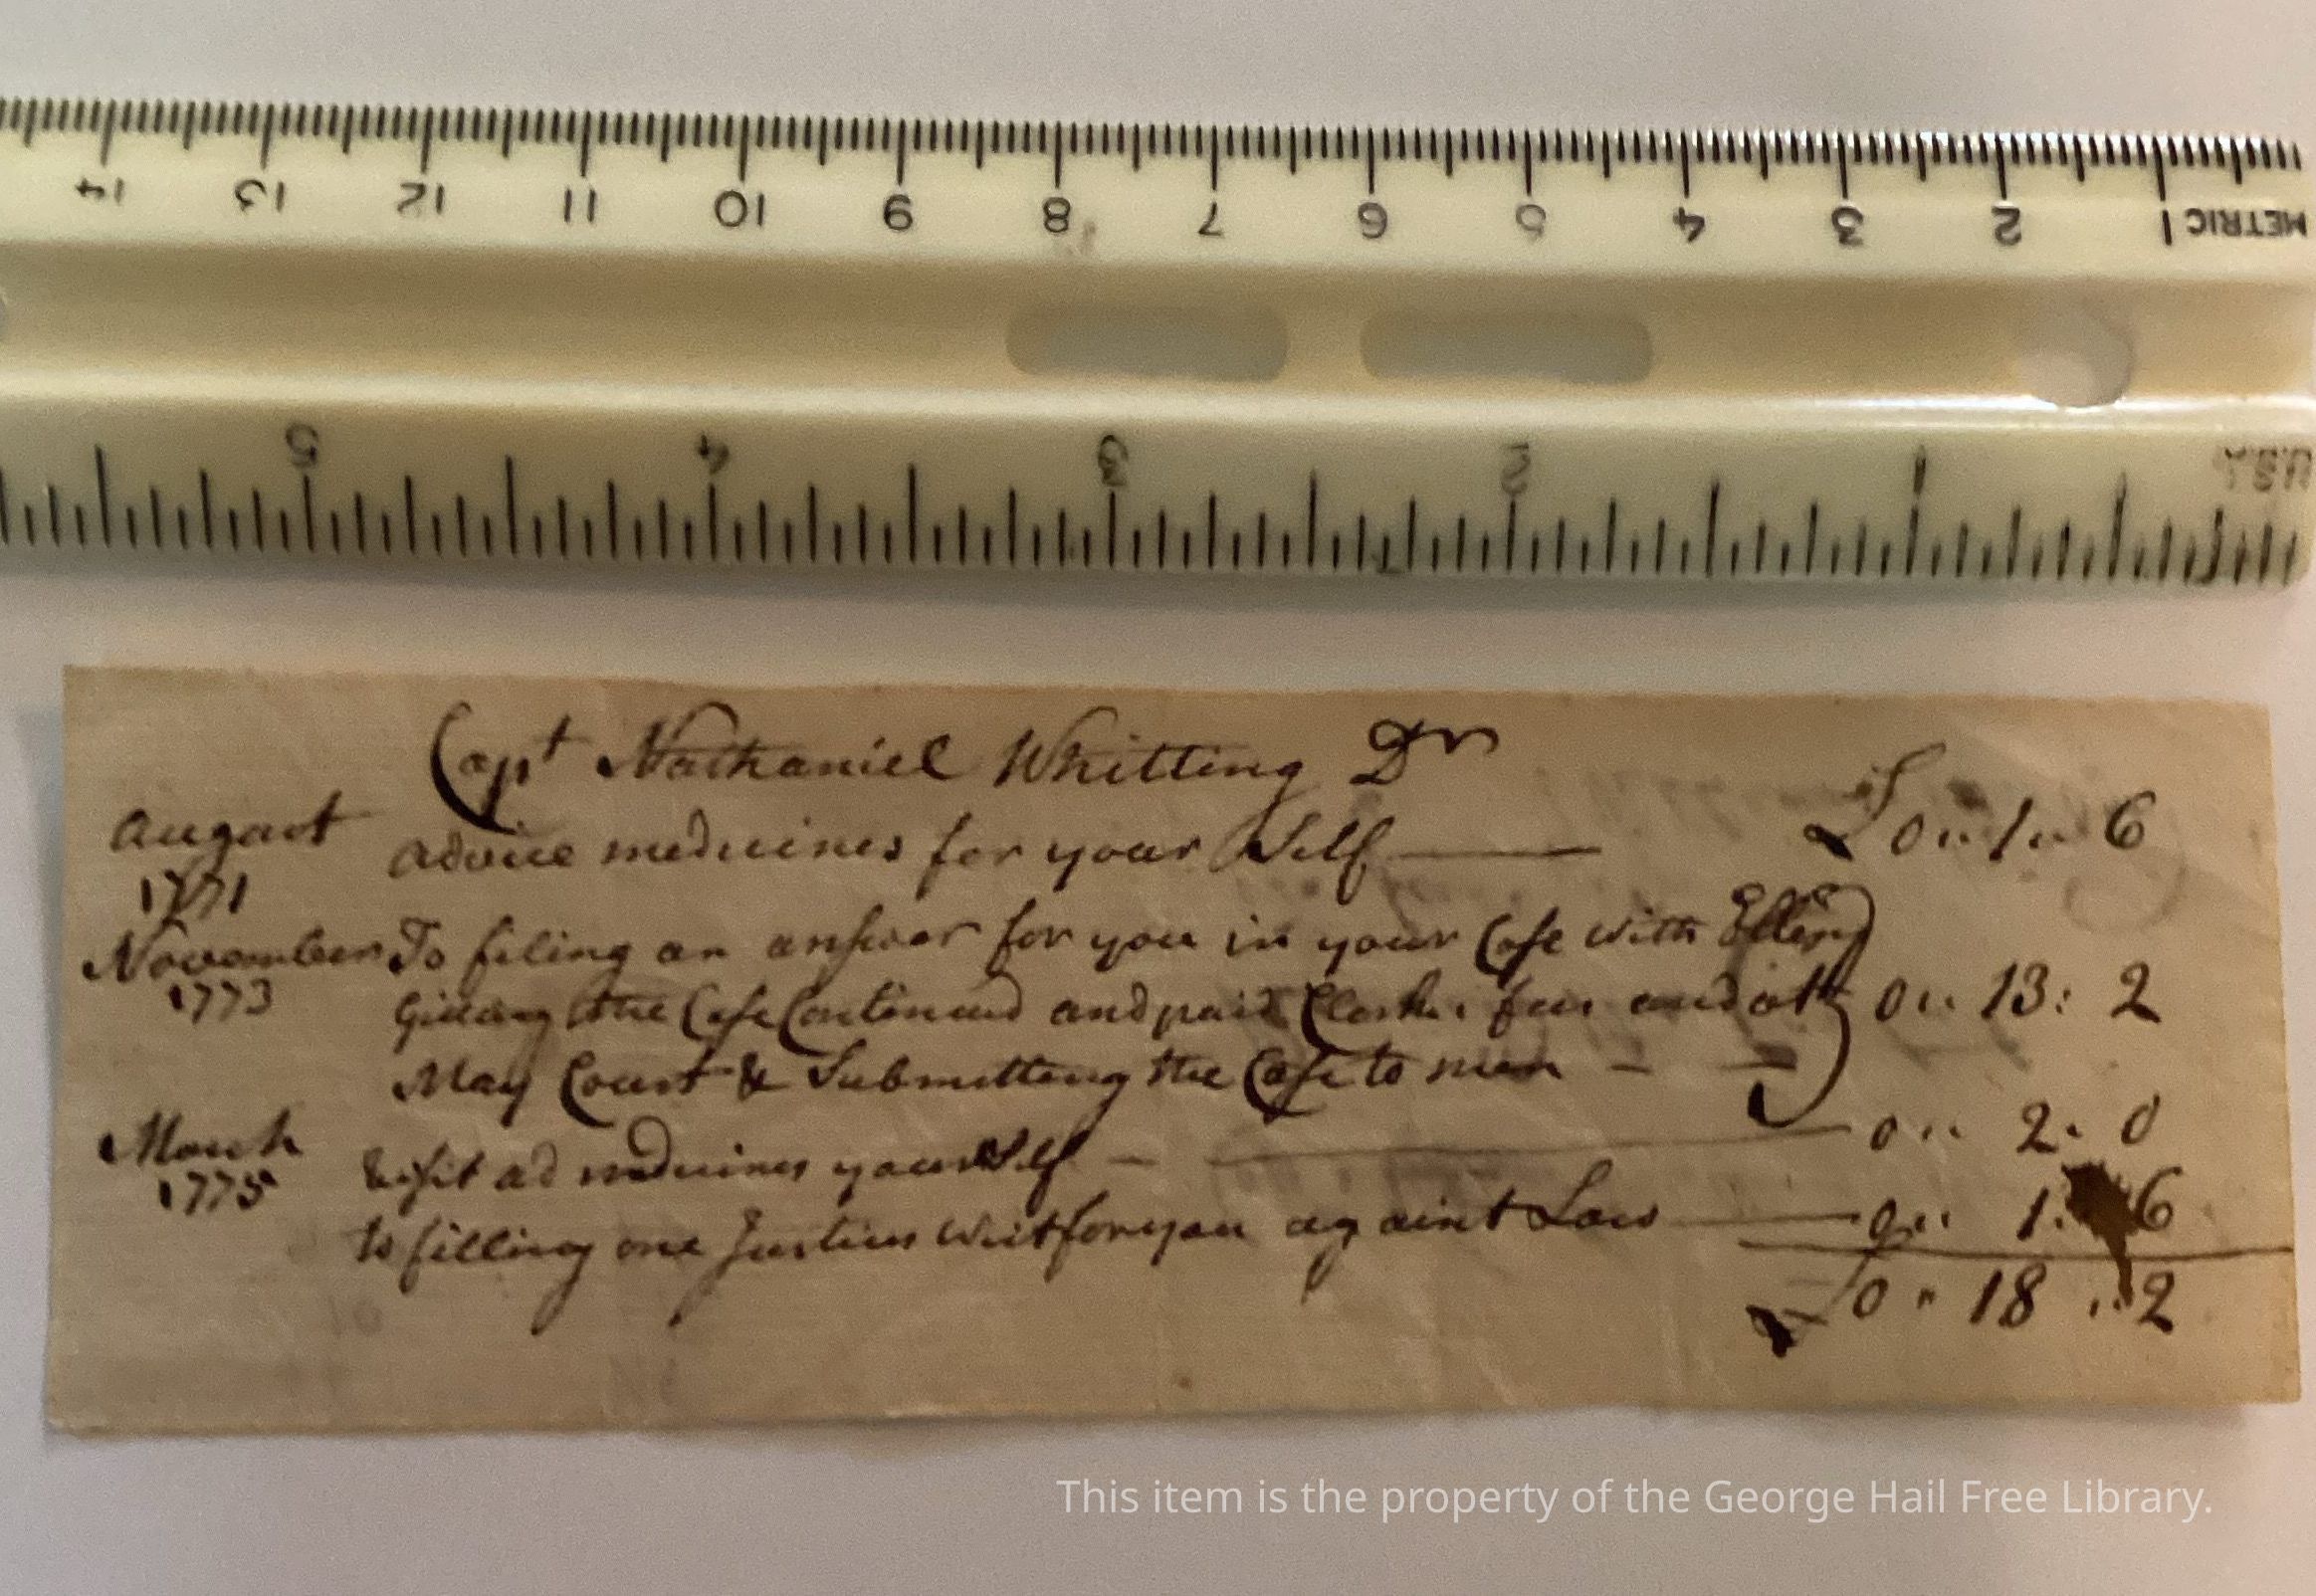 14 13 12 11 10 9 8 7 6 5 4 3 2 1 METRIC
5 4 3 2 1 U.S.
Capt Nathaniel Whitting Dr
August advice medicines for your Self £0 „ 1 „ 6
1771
November To filing an answer for you in your Case with Ellery
1773 the Case Continued and paid Clerks fees and att 0 „ 13 : 2
May Court & Submitting the Case to men
March visit ad medicines yourself 0 „ 2 „ 0
1775
to filling one Justices Writ for you againt Law 0 „ 1 „ 6
£0 „ 18 „ 2
This item is the property of the George Hail Free Library.